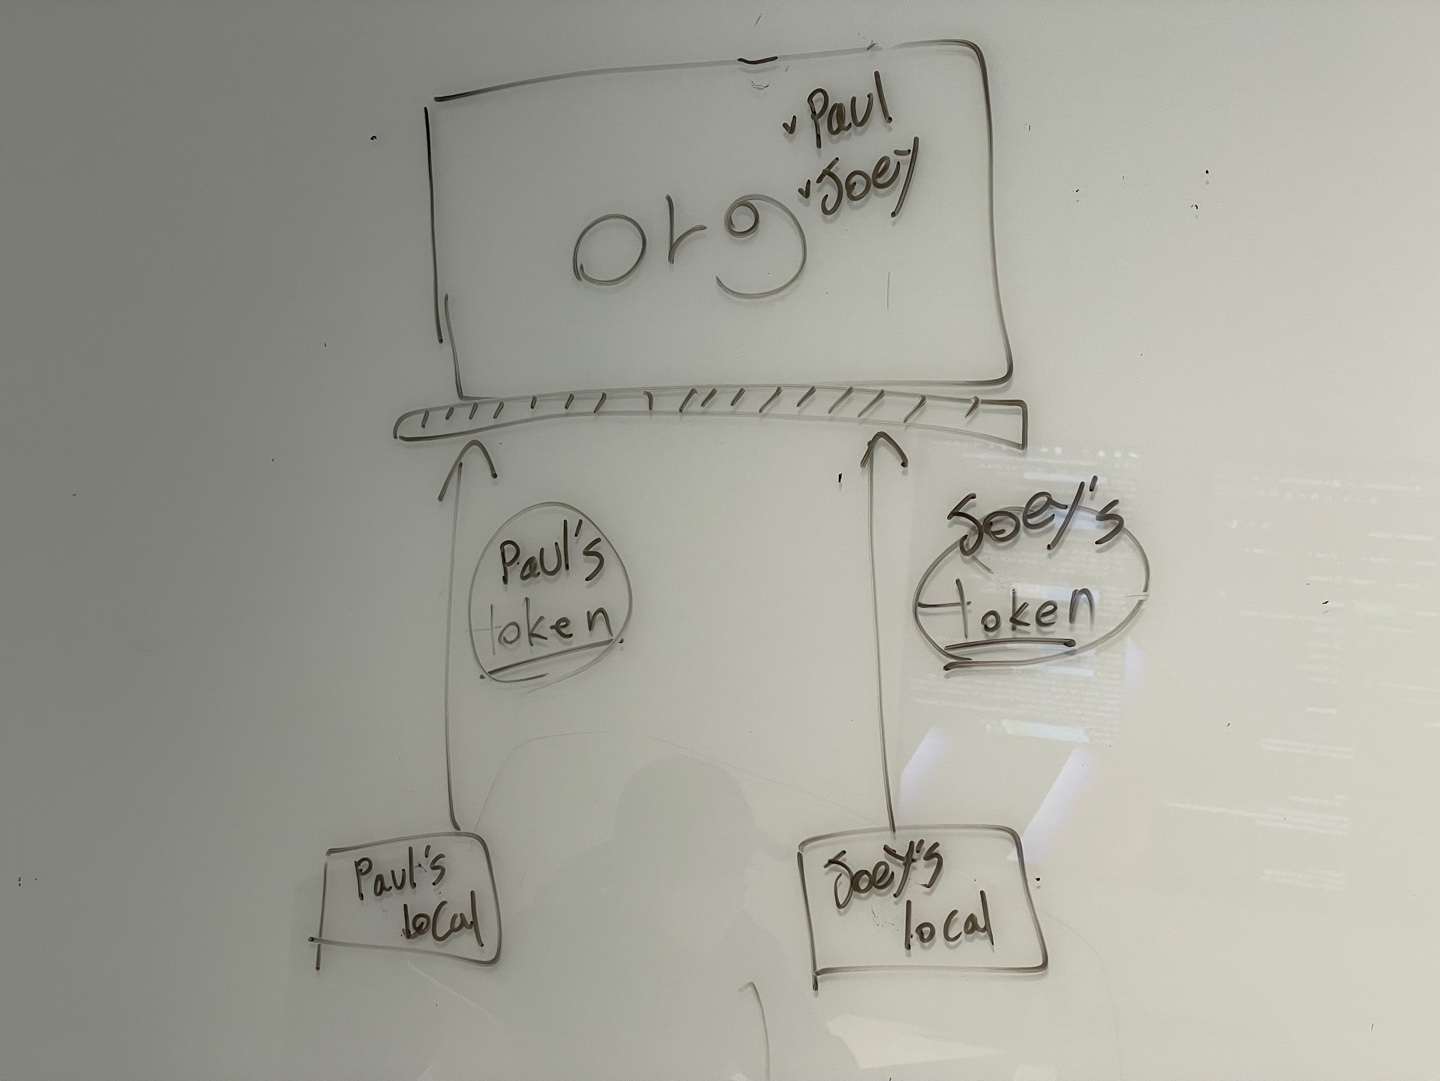 Paul
Joey
org
Paul's
token
Joey's
token
Paul's
local
Joey's
local